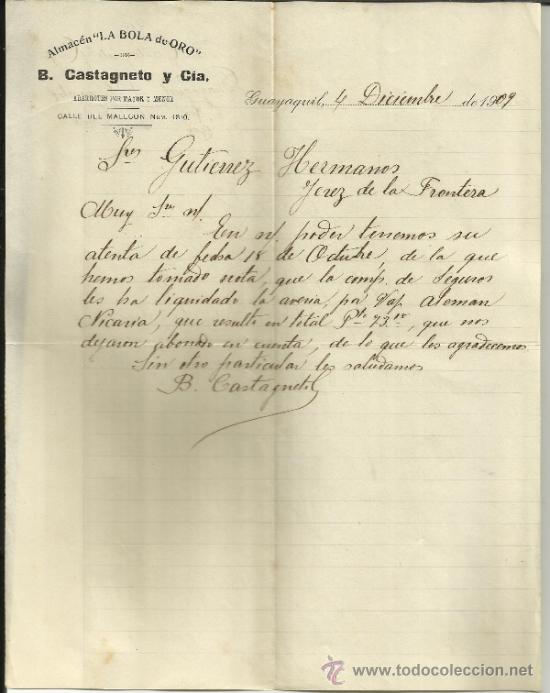 Almacén "LA BOLA de ORO"
B. Castagneto y Cía.
ABARROTES POR MAYOR Y MENOR
CALLE DEL MALECON NUM.
Guayaquil, 4 Diciembre de 1909
Sres Gutierrez Hermanos
Jerez de la Frontera
Muy Sres n/.
En n/. poder tenemos su
atenta de fecha 18 de Octubre, de la que
hemos tomado nota, que la comp. de Seguros
les ha liquidado la averia, pr Vap. Aleman
Nicaria, que resulto en total Pts 73.10, que nos
dejaron abonado en cuenta, de lo que les agradecemos.
Sin otro particular les saludamos
B. Castagneto
todocoleccion
www.todocoleccion.net